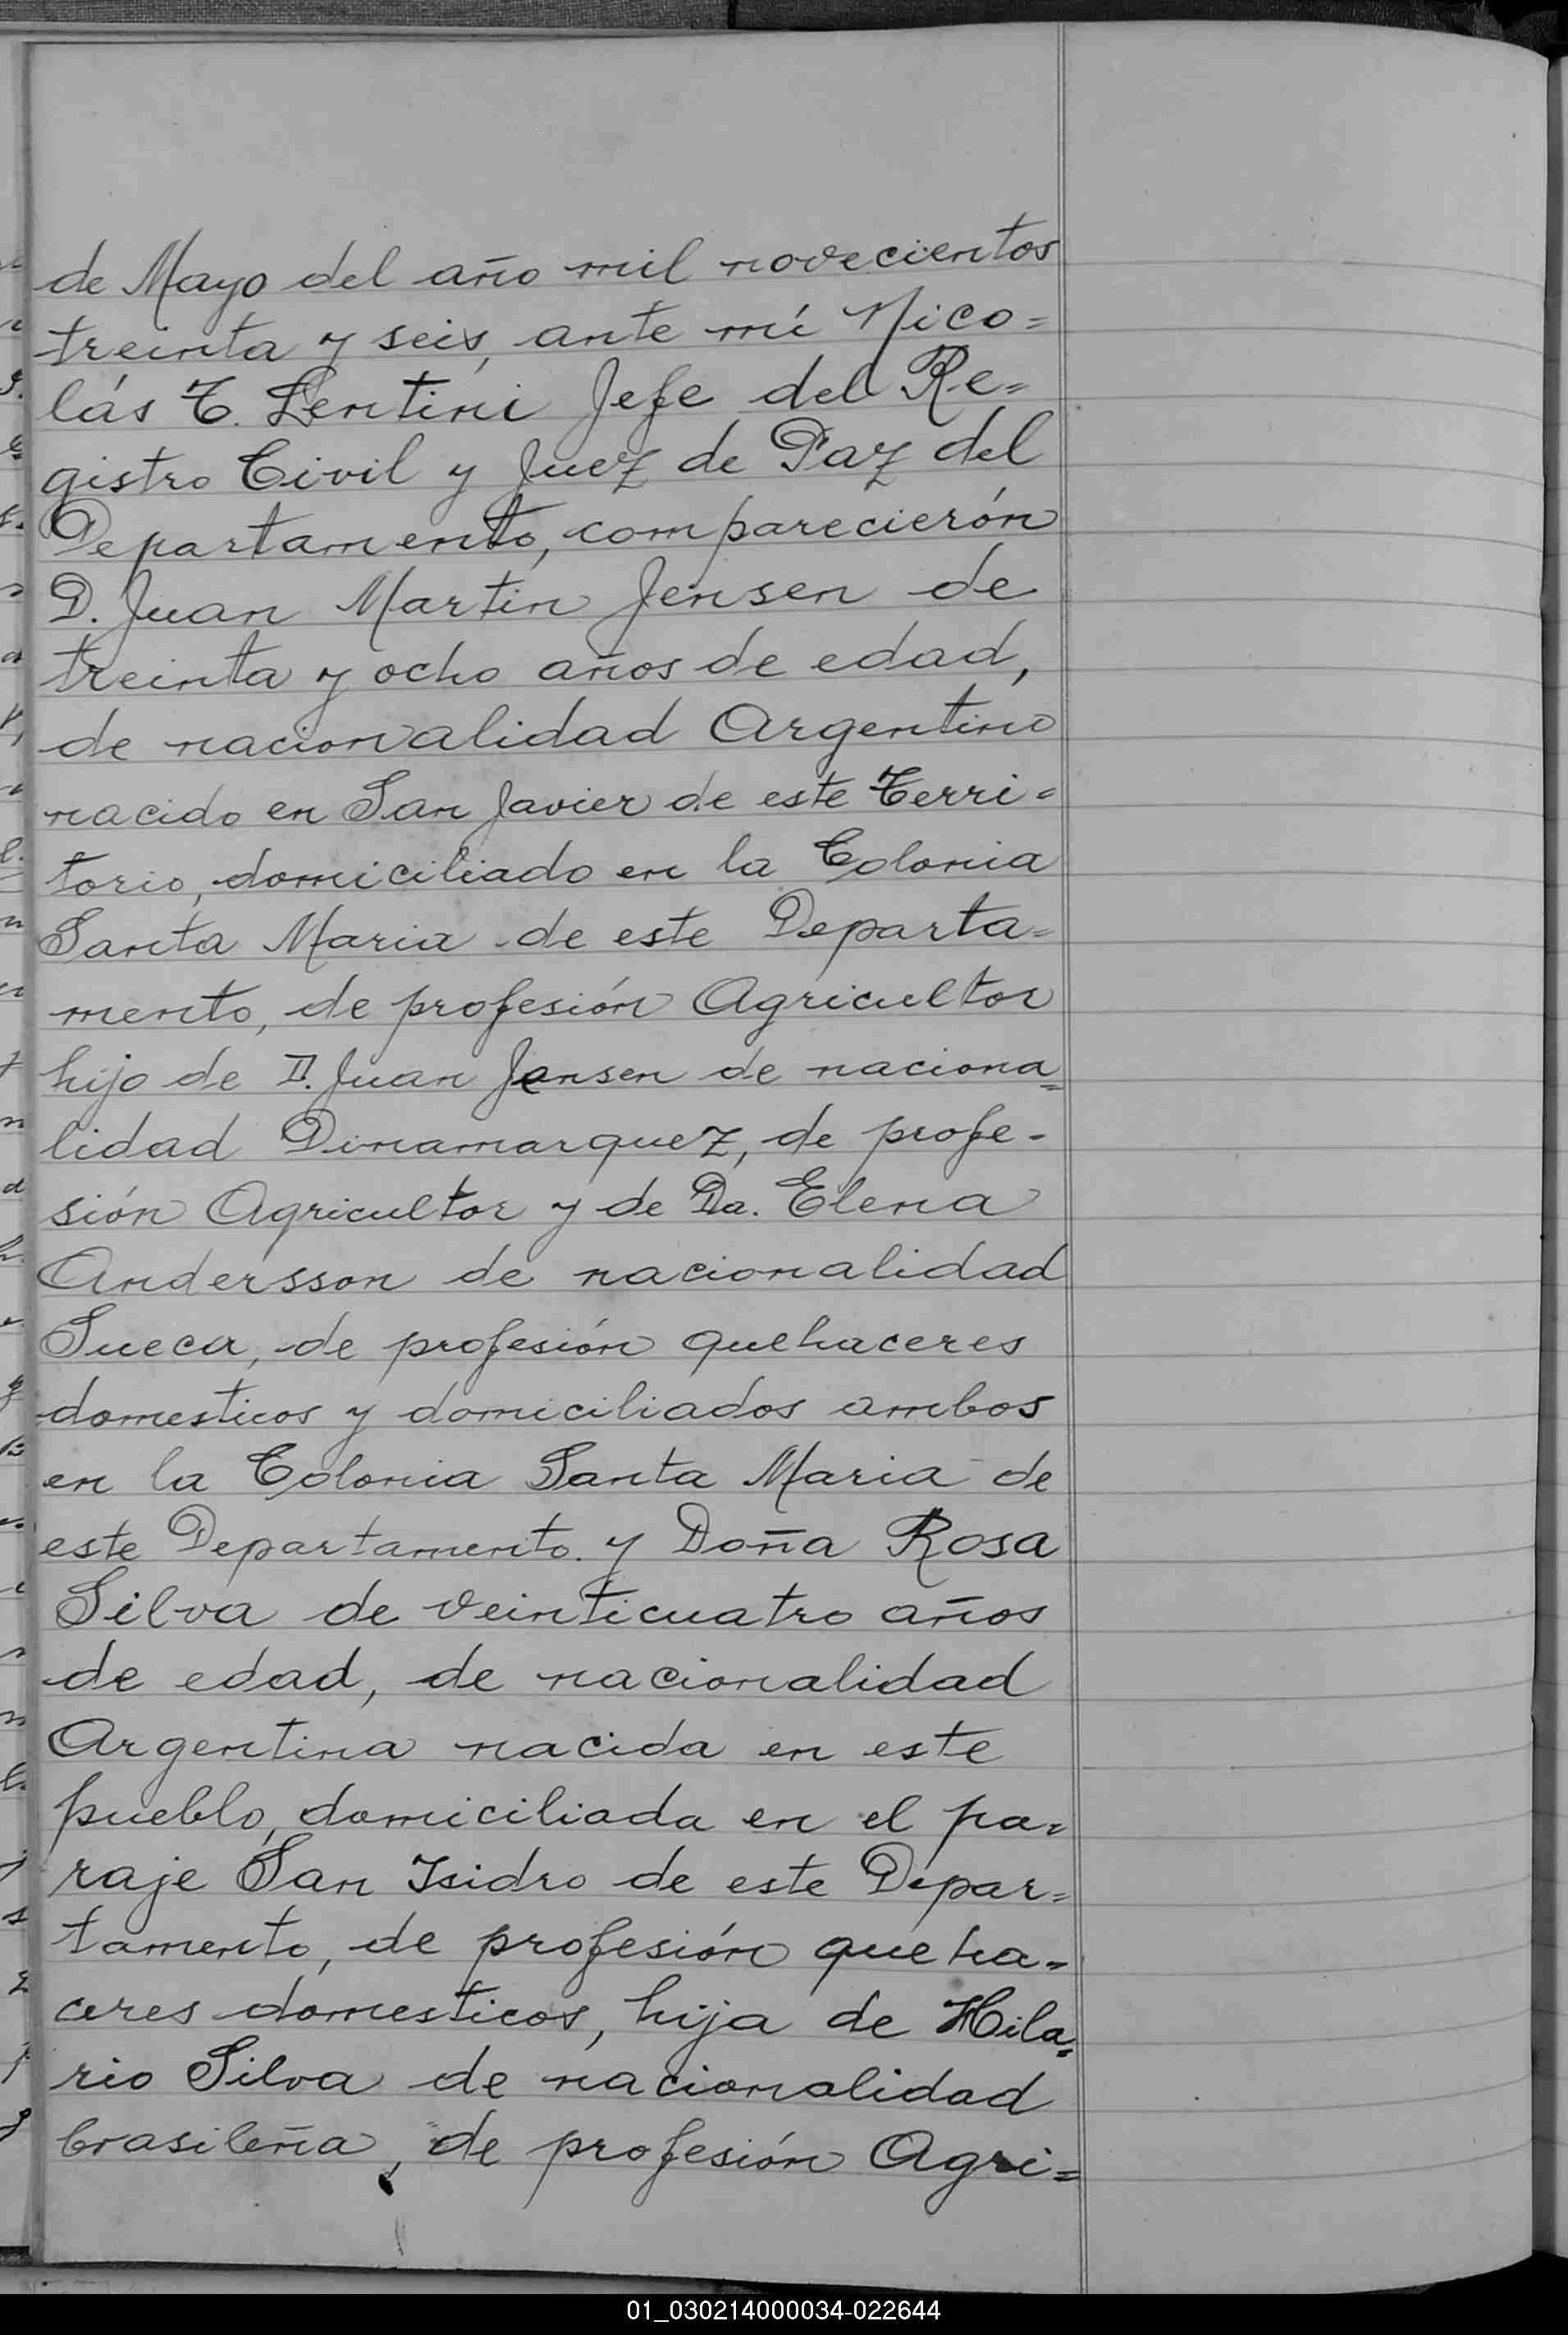 de Mayo del año mil novecientos
treinta y seis, ante mí Nico=
lás T. Lentini Jefe del Re=
gistro Civil y Juez de Paz del
Departamento, comparecierón
D. Juan Martin Jensen de
treinta y ocho años de edad,
de nacionalidad Argentino
nacido en San Javier de este Terri=
torio, domiciliado en la Colonia
Santa Maria de este Departa=
mento, de profesión Agricultor
hijo de D. Juan Jensen de naciona=
lidad Dinamarquez, de profe-
sión Agricultor y de Da. Elena
Andersson de nacionalidad
Sueca, de profesión quehaceres
domesticos y domiciliados ambos
en la Colonia Santa Maria de
este Departamento. y Doña Rosa
Silva de veinticuatro años
de edad, de nacionalidad
Argentina nacida en este
pueblo, domiciliada en el pa=
raje San Isidro de este Depar=
tamento, de profesión queha=
ceres domesticos, hija de Hila=
rio Silva de nacionalidad
brasileña, de profesión Agri=
01_030214000034-022644